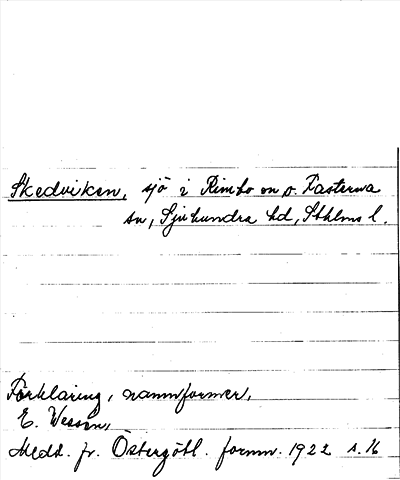 Skedviken, sjö i Rimbo o. Fasterna
sn, Sjuhundra hd, Sthlms l.
Förklaring, namnformer,
E. Wessén,
Medd. fr. Östergötl. fornm. 1922 s. 16